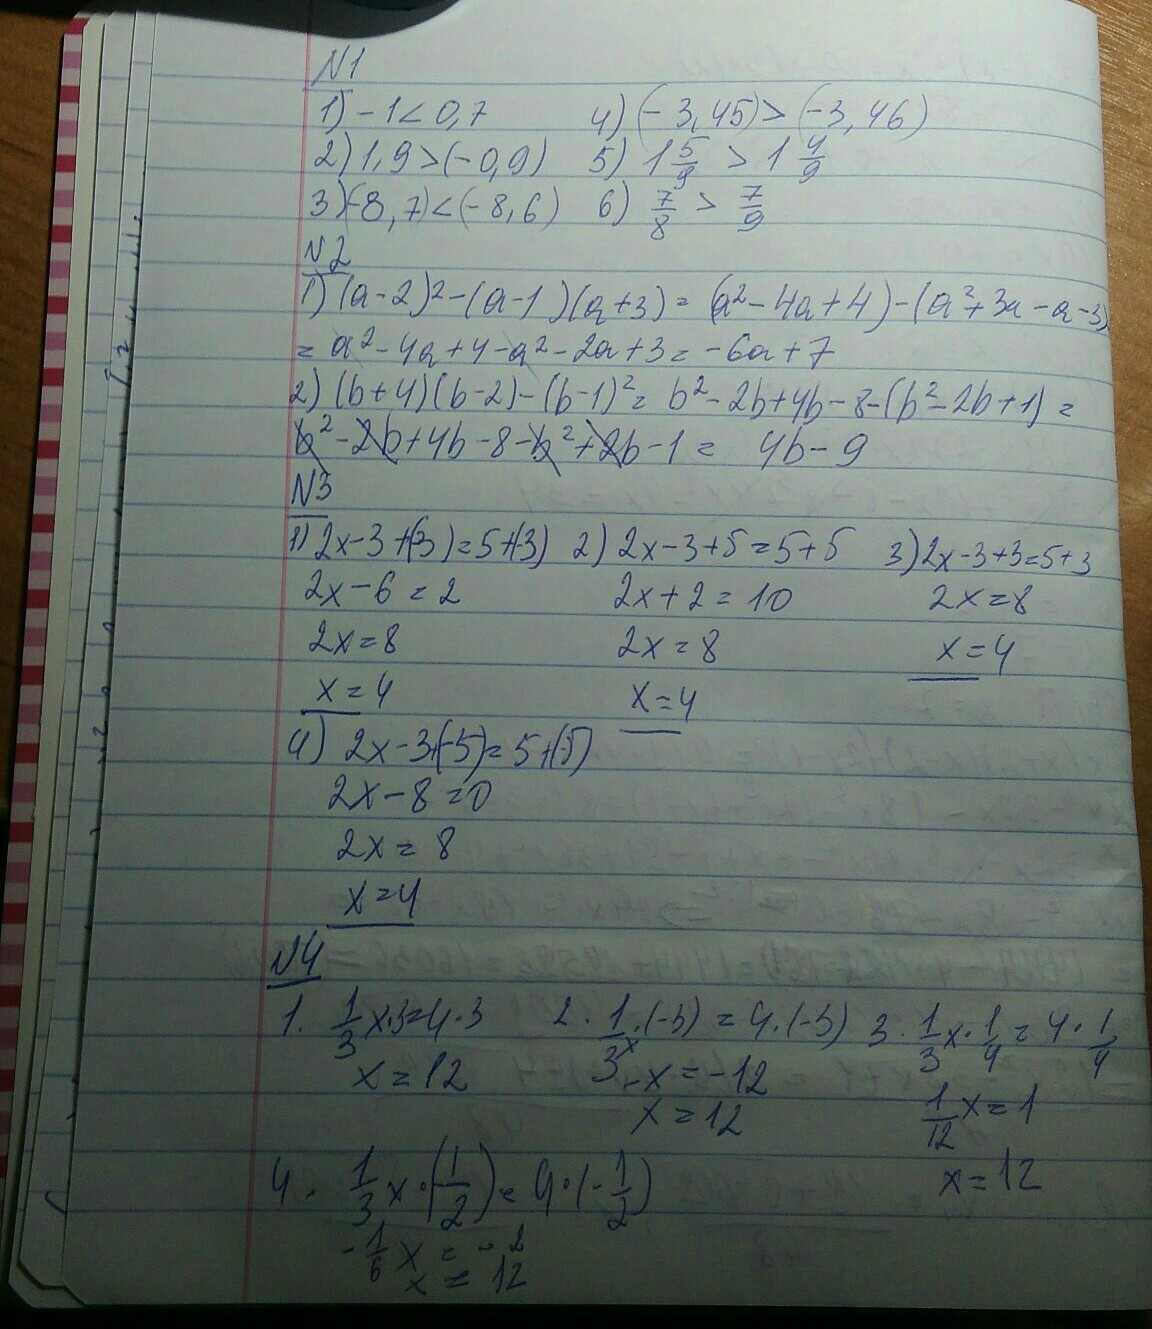 N1
1) -1 < 0,7 4) (-3,45) > (-3,46)
2) 1,9 > (-0,9) 5) 1 5/9 > 1 4/9
3) (-8,7) < (-8,6) 6) 7/8 > 7/9
N2
1) (a-2)² - (a-1)(a+3) = (a² - 4a + 4) - (a² + 3a - a - 3)
= a² - 4a + 4 - a² - 2a + 3 = -6a + 7
2) (b+4)(b-2) - (b-1)² = b² - 2b + 4b - 8 - (b² - 2b + 1) =
b² - 2b + 4b - 8 - b² + 2b - 1 = 4b - 9
N3
1) 2x - 3 + (-3) = 5 + (-3) 2) 2x - 3 + 5 = 5 + 5 3) 2x - 3 + 3 = 5 + 3
2x - 6 = 2 2x + 2 = 10 2x = 8
2x = 8 2x = 8 x = 4
x = 4 x = 4
4) 2x - 3 + (-5) = 5 + (-5)
2x - 8 = 0
2x = 8
x = 4
N4
1. 1/3 x · 3 = 4 · 3 2. 1/3 x · (-3) = 4 · (-3) 3. 1/3 x · 1/4 = 4 · 1/4
x = 12 -x = -12 1/12 x = 1
x = 12 x = 12
4. 1/3 x · (-1/2) = 4 · (-1/2)
-1/6 x = -2
x = 12